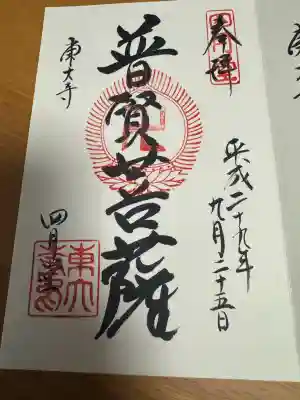 奉拝
平成二十九年
九月二十五日
普賢菩薩
東大寺
四月堂